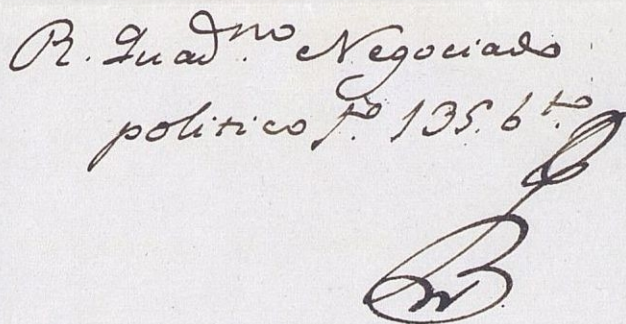 R. Quad.no Negociado
politico fo. 135. bto